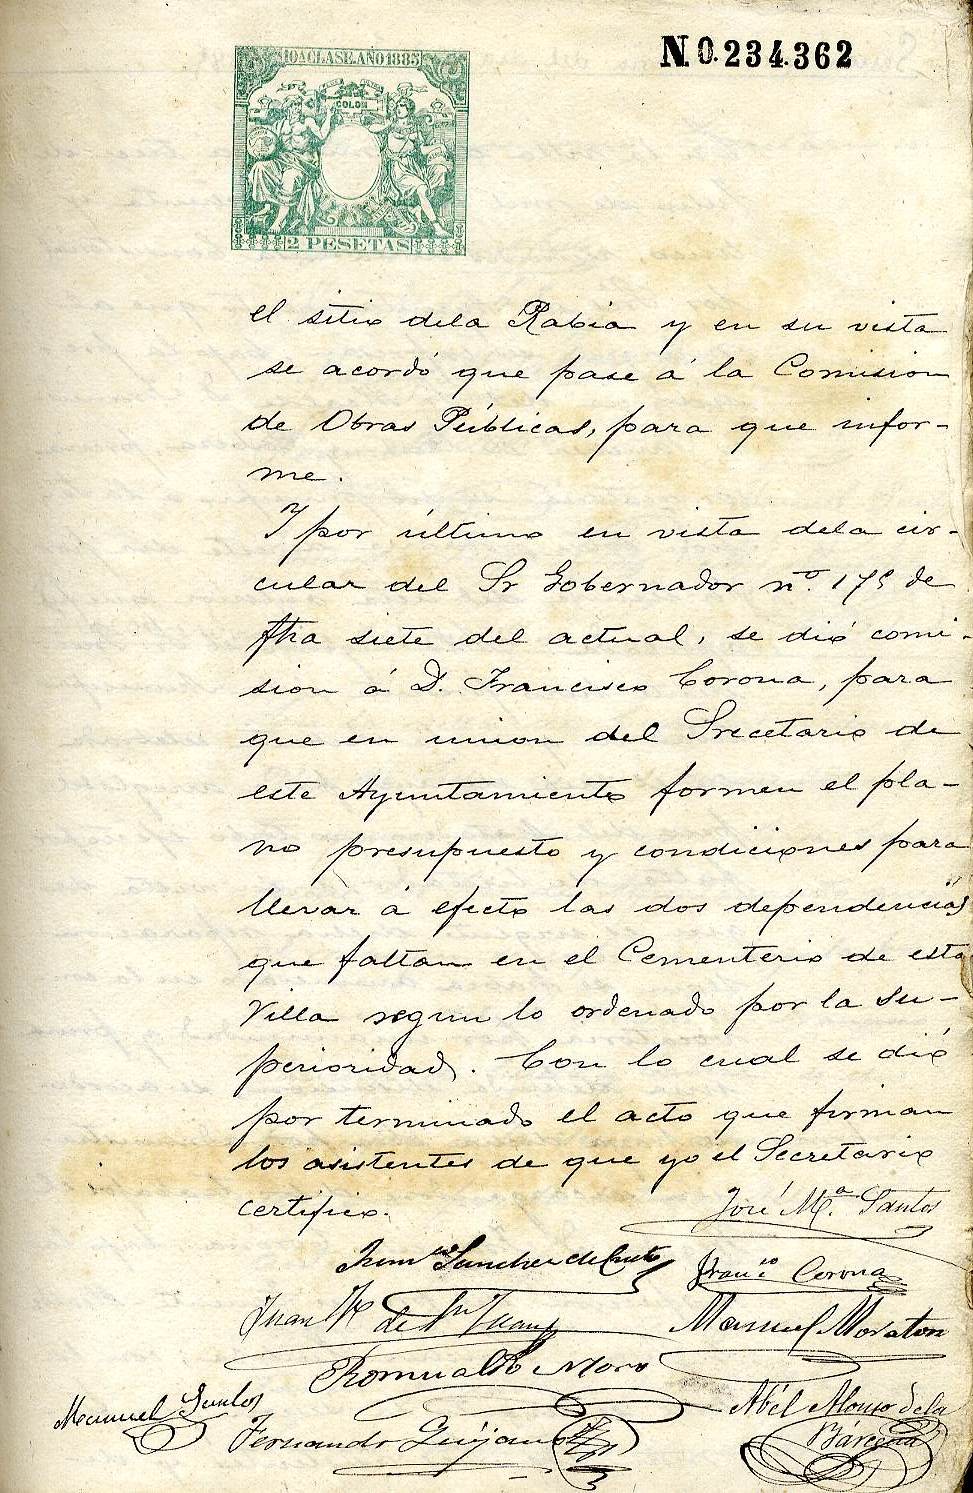 10ª CLASE. AÑO 1885
N.0.234.362
COLON
2 PESETAS
el sitio dela Rabia y en su vista
se acordó que pase á la Comision
de Obras Públicas, para que infor-
me.
Y por último en vista dela cir-
cular del Sr Gobernador nº. 175 de
fha siete del actual, se dió comi-
sion á D. Francisco Corona, para
que en union del Srecetario de
este Ayuntamiento formen el pla-
no presupuesto y condiciones para
llevar á efecto las dos dependencias
que faltan en el Cementerio de esta
Villa segun lo ordenado por la Su-
perioridad. Con lo cual se dió
por terminado el acto que firman
los asistentes de que yo el Secretario
certifico.
José Mª. Santos
Sanchez de Cueto
Franco Corona
Juan
de
Manuel Moraton
Romualdo Moro
Manuel Santos
Abél Alonso de la
Fernando Quijano
Bárcena